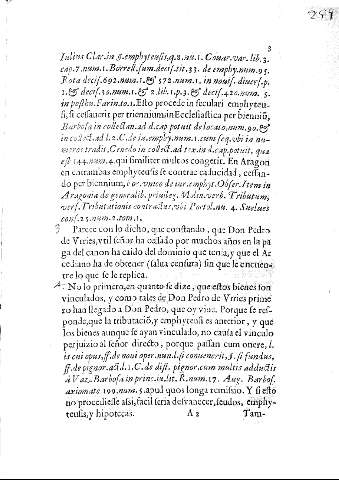 8
Iulius Clar. in §. emphyteusis, q. 8. nu. 1. Couar. var. lib. 3.
cap. 7. num. 1. Borrell. sum. decis. tit. 33. de emphy. num. 95.
Rota decis. 692. num. 1. & 572. num. 1. in nouis. diuers. p.
1. & decis. 30. num. 1. & 2. lib. 1. p. 3. & decis. 420. num. 5.
in posthu. Farin. to. 1. Esto procede in seculari emphyteu-
si, si cessauerit per triennium in Ecclesiastica per bienniũ,
Barbosa in collectan. ad d. cap. potuit de locato, num. 90. &
in collect. ad l. 2. C. de iu. emphy. num. 1. cum seq. vbi in nu-
meros tradit, Cenedo in collect. ad tex. in d. cap. potuit, quæ
est 144. num. 4. qui similiter multos congerit. En Aragon
en entrambas emphyteusis se contrae caducidad, cessan-
do per biennium,
Aragonia de generalib. priuileg. Molin. verb. Tributum,
vers. Tributationis contractus, vbi Portol. nu. 4. Suelues
cons. 25. num. 2. tom. 1.
3 Parece con lo dicho, que constando, que Don Pedro
de Vrries, vtil señor ha cessado por muchos años en la pa
ga del canon ha caido del dominio que tenia, y que el Ar
cediano ha de obtener (salua censura) sin que le encuen-
tre lo que se le replica.
4 No lo primero, en quanto se dize, que estos bienes son
vinculados, y como tales de Don Pedro de Vrries prime
ro han llegado a Don Pedro, que oy viue. Porque se res-
ponde, que la tributaciõ, y emphyteusi es anterior, y que
los bienes aunque se ayan vinculado, no causa el vinculo
perjuizio al señor directo, porque passan cum onere, l.
is cui opus, ff. de noui oper. nun. l. si conuenerit, §. si fundus,
ff. de pignor. act. l. 1. C. de dist. pignor. cum multis adductis
à Vaz. Barbosa in princ. in lit. R. num. 17. Aug. Barbos.
axiomate 199. num. 5. apud quos longa remissio. Y si esto
no procediesse assi, facil seria desvanecer, feudos, emphy-
teusis, y hipotecas. A 2 Tam-